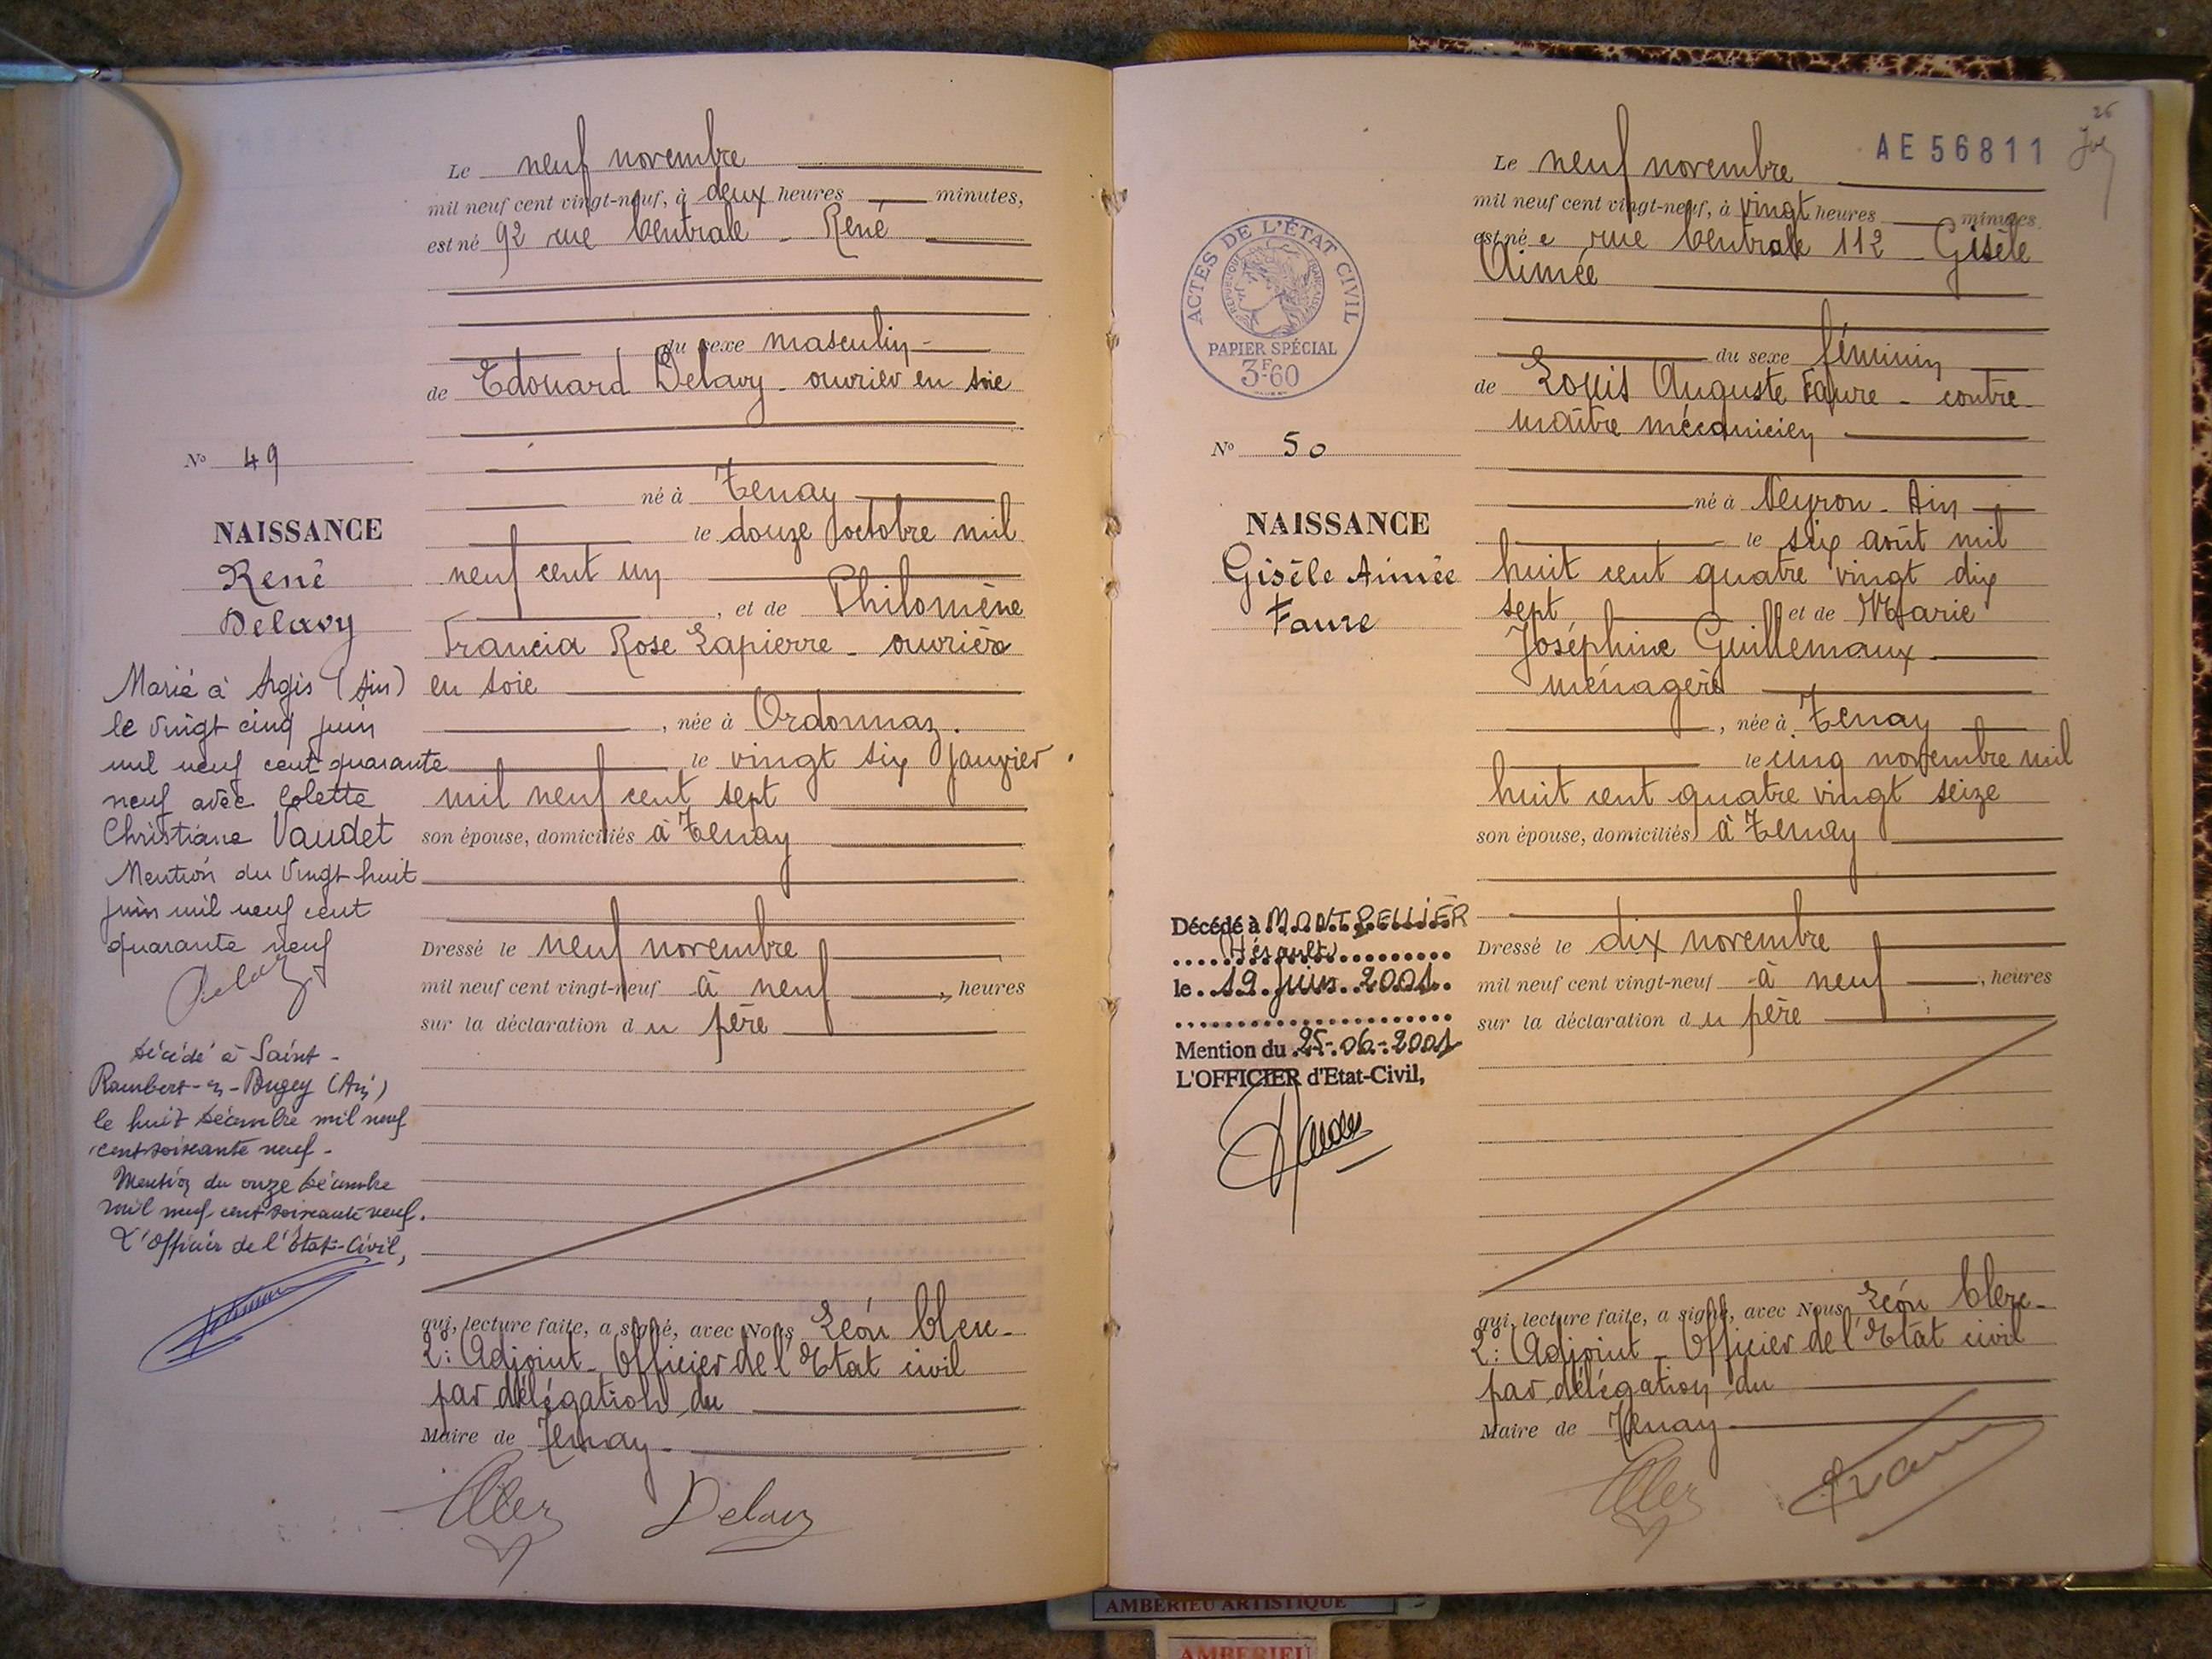 Le neuf novembre
mil neuf cent vingt-neuf, à deux heures minutes,
est né 92 rue Centrale - René
du sexe masculin -
de Edouard Delavy - ouvrier en soie
né à Tenay
le douze octobre mil
neuf cent un
, et de Philomène
Francia Rose Lapierre - ouvrière
en soie
, née à Ordonnaz.
le vingt six janvier
mil neuf cent sept
son épouse, domiciliés à Tenay
Dressé le neuf novembre
mil neuf cent vingt-neuf à neuf , heures
sur la déclaration du père
qui, lecture faite, a signé, avec Nous Léon Clerc-
2: Adjoint - Officier de l'Etat civil
par délégation du
Maire de Tenay -
Clerc Delavy
No 49
NAISSANCE
René
Delavy
Marié à Argis (Ain)
le vingt cinq juin
mil neuf cent quarante
neuf avec Colette
Christiane Vaudet
Mention du vingt huit
juin mil neuf cent
quarante neuf
Décédé à Saint-
Rambert-en-Bugey (Ain)
le huit décembre mil neuf
cent soixante neuf-
Mention du onze décembre
mil neuf cent soixante neuf.
L'Officier de l'Etat-Civil,
26
AE56811
Le neuf novembre
mil neuf cent vingt-neuf, à vingt heures minutes
est née rue Centrale 112 - Gisèle
Aimée
du sexe féminin
de Louis Auguste Faure - contre-
maître mécanicien
né à Neyron - Ain
le six août mil
huit cent quatre vingt dix
sept et de Marie
Joséphine Guillemaux
ménagère
, née à Tenay
le cinq novembre mil
huit cent quatre vingt seize
son épouse, domiciliés à Tenay
Dressé le dix novembre
mil neuf cent vingt-neuf à neuf , heures
sur la déclaration du père
qui, lecture faite, a signé, avec Nous Léon Clerc-
2: Adjoint - Officier de l'Etat civil
par délégation du
Maire de Tenay -
Clerc
ACTES DE L'ÉTAT CIVIL
RÉPUBLIQUE FRANÇAISE
PAPIER SPÉCIAL
3F60
No 50
NAISSANCE
Gisèle Aimée
Faure
Décédé à MONTPELLIER
Hérault
le 19 juin 2001
Mention du 25-06-2001
L'OFFICIER d'Etat-Civil,
AMBERIEU ARTISTIQUE
AMBERIEU